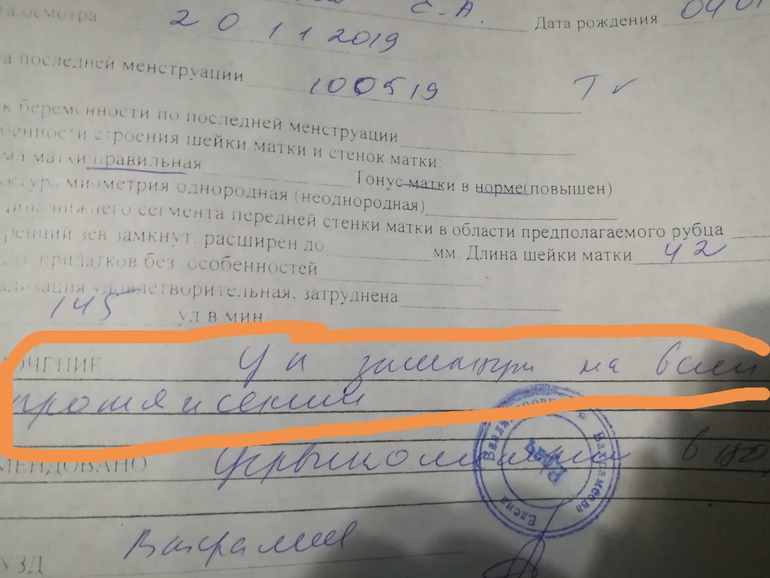 та осмотра 20 11 2019 Е.А. Дата рождения 0401
а последней менструации 100519
к беременности по последней менструации
бенности строения шейки матки и стенок матки:
ма матки правильная Тонус матки в норме(повышен)
ктура миометрия однородная (неоднородная)
щина нижнего сегмента передней стенки матки в области предполагаемого рубца
ренний зев замкнут, расширен до мм. Длина шейки матки 42
придатков без особенностей
ализация удовлетворительная, затруднена
145 уд в мин
ЮЧЕНИЕ Ц к замкнут на всем
протяжении
МЕНДОВАНО Цервикометрия в
УЗД